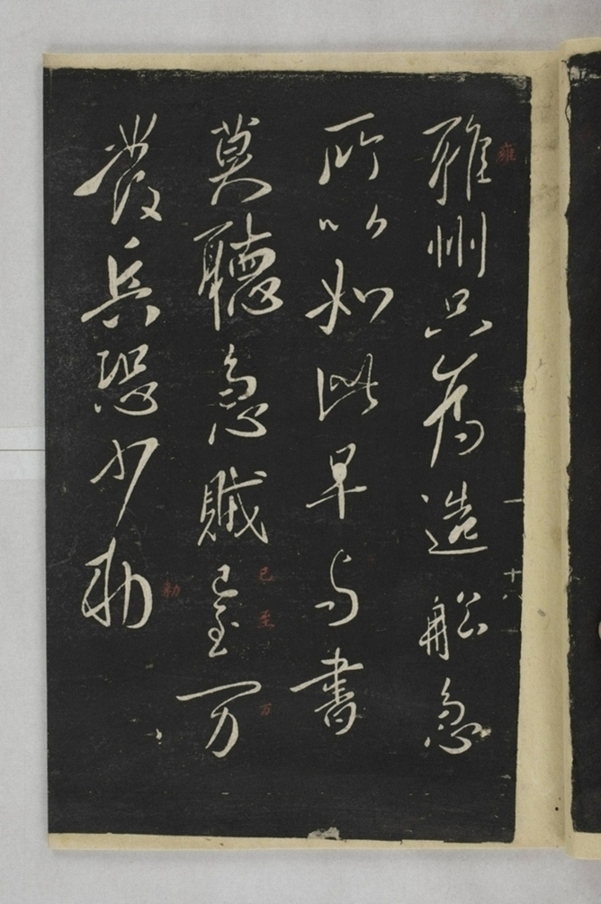 雍州只為造船急
所以如此早与書
莫聽急賊已至万
發兵恐少勅
雍
已至
万
勅
十八